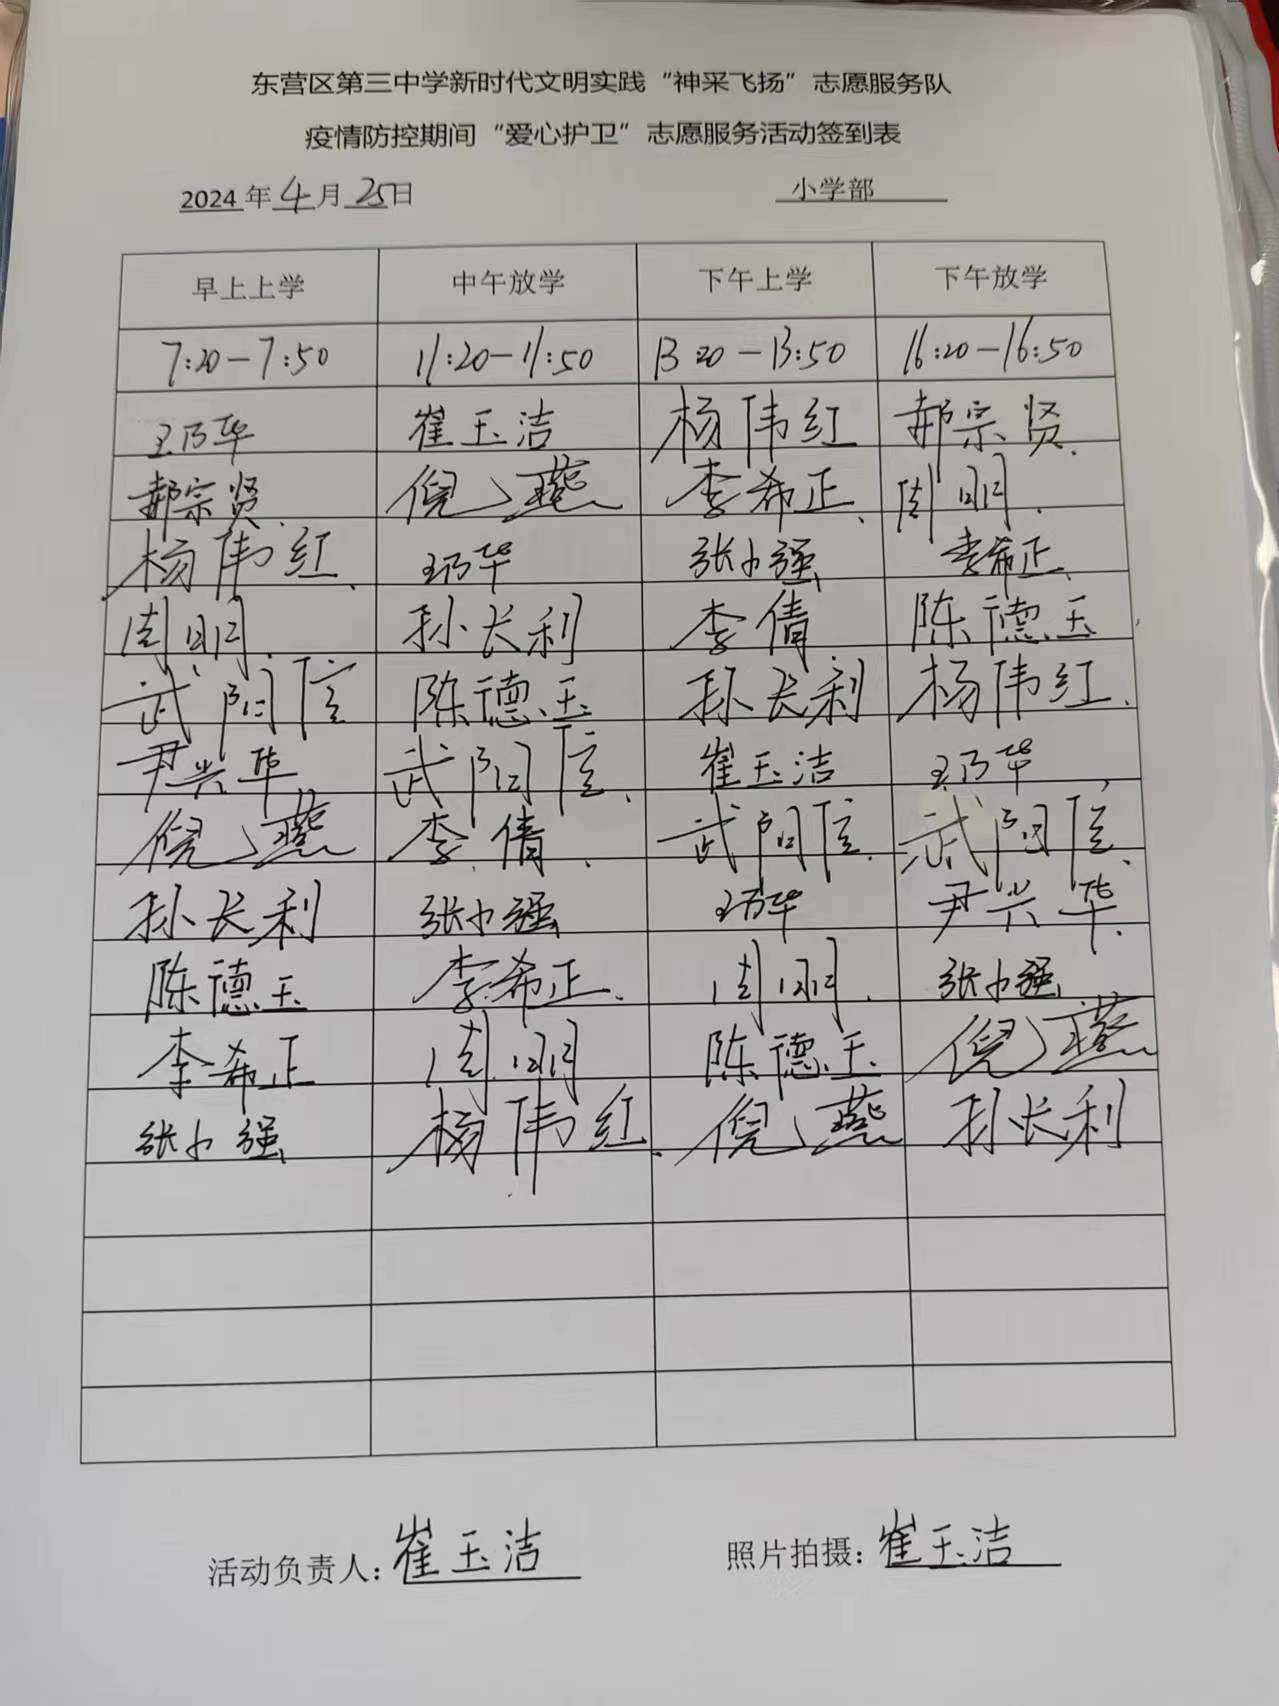 东营区第三中学新时代文明实践“神采飞扬”志愿服务队
疫情防控期间“爱心护卫”志愿服务活动签到表
2024年4月25日 小学部
早上上学 中午放学 下午上学 下午放学
7:20-7:50 11:20-11:50 13:20-13:50 16:20-16:50
王乃华 崔玉洁 杨伟红 郝宗贤
郝宗贤 倪燕 李希正 周明
杨伟红 王乃华 张小强 李希正
周明 孙长利 李倩 陈德玉
武阳信 陈德玉 孙长利 杨伟红
尹兴华 武阳信 崔玉洁 王乃华
倪燕 李倩 武阳信 武阳信
孙长利 张小强 王乃华 尹兴华
陈德玉 李希正 周明 张小强
李希正 周明 陈德玉 倪燕
张小强 杨伟红 倪燕 孙长利
活动负责人：崔玉洁 照片拍摄：崔玉洁